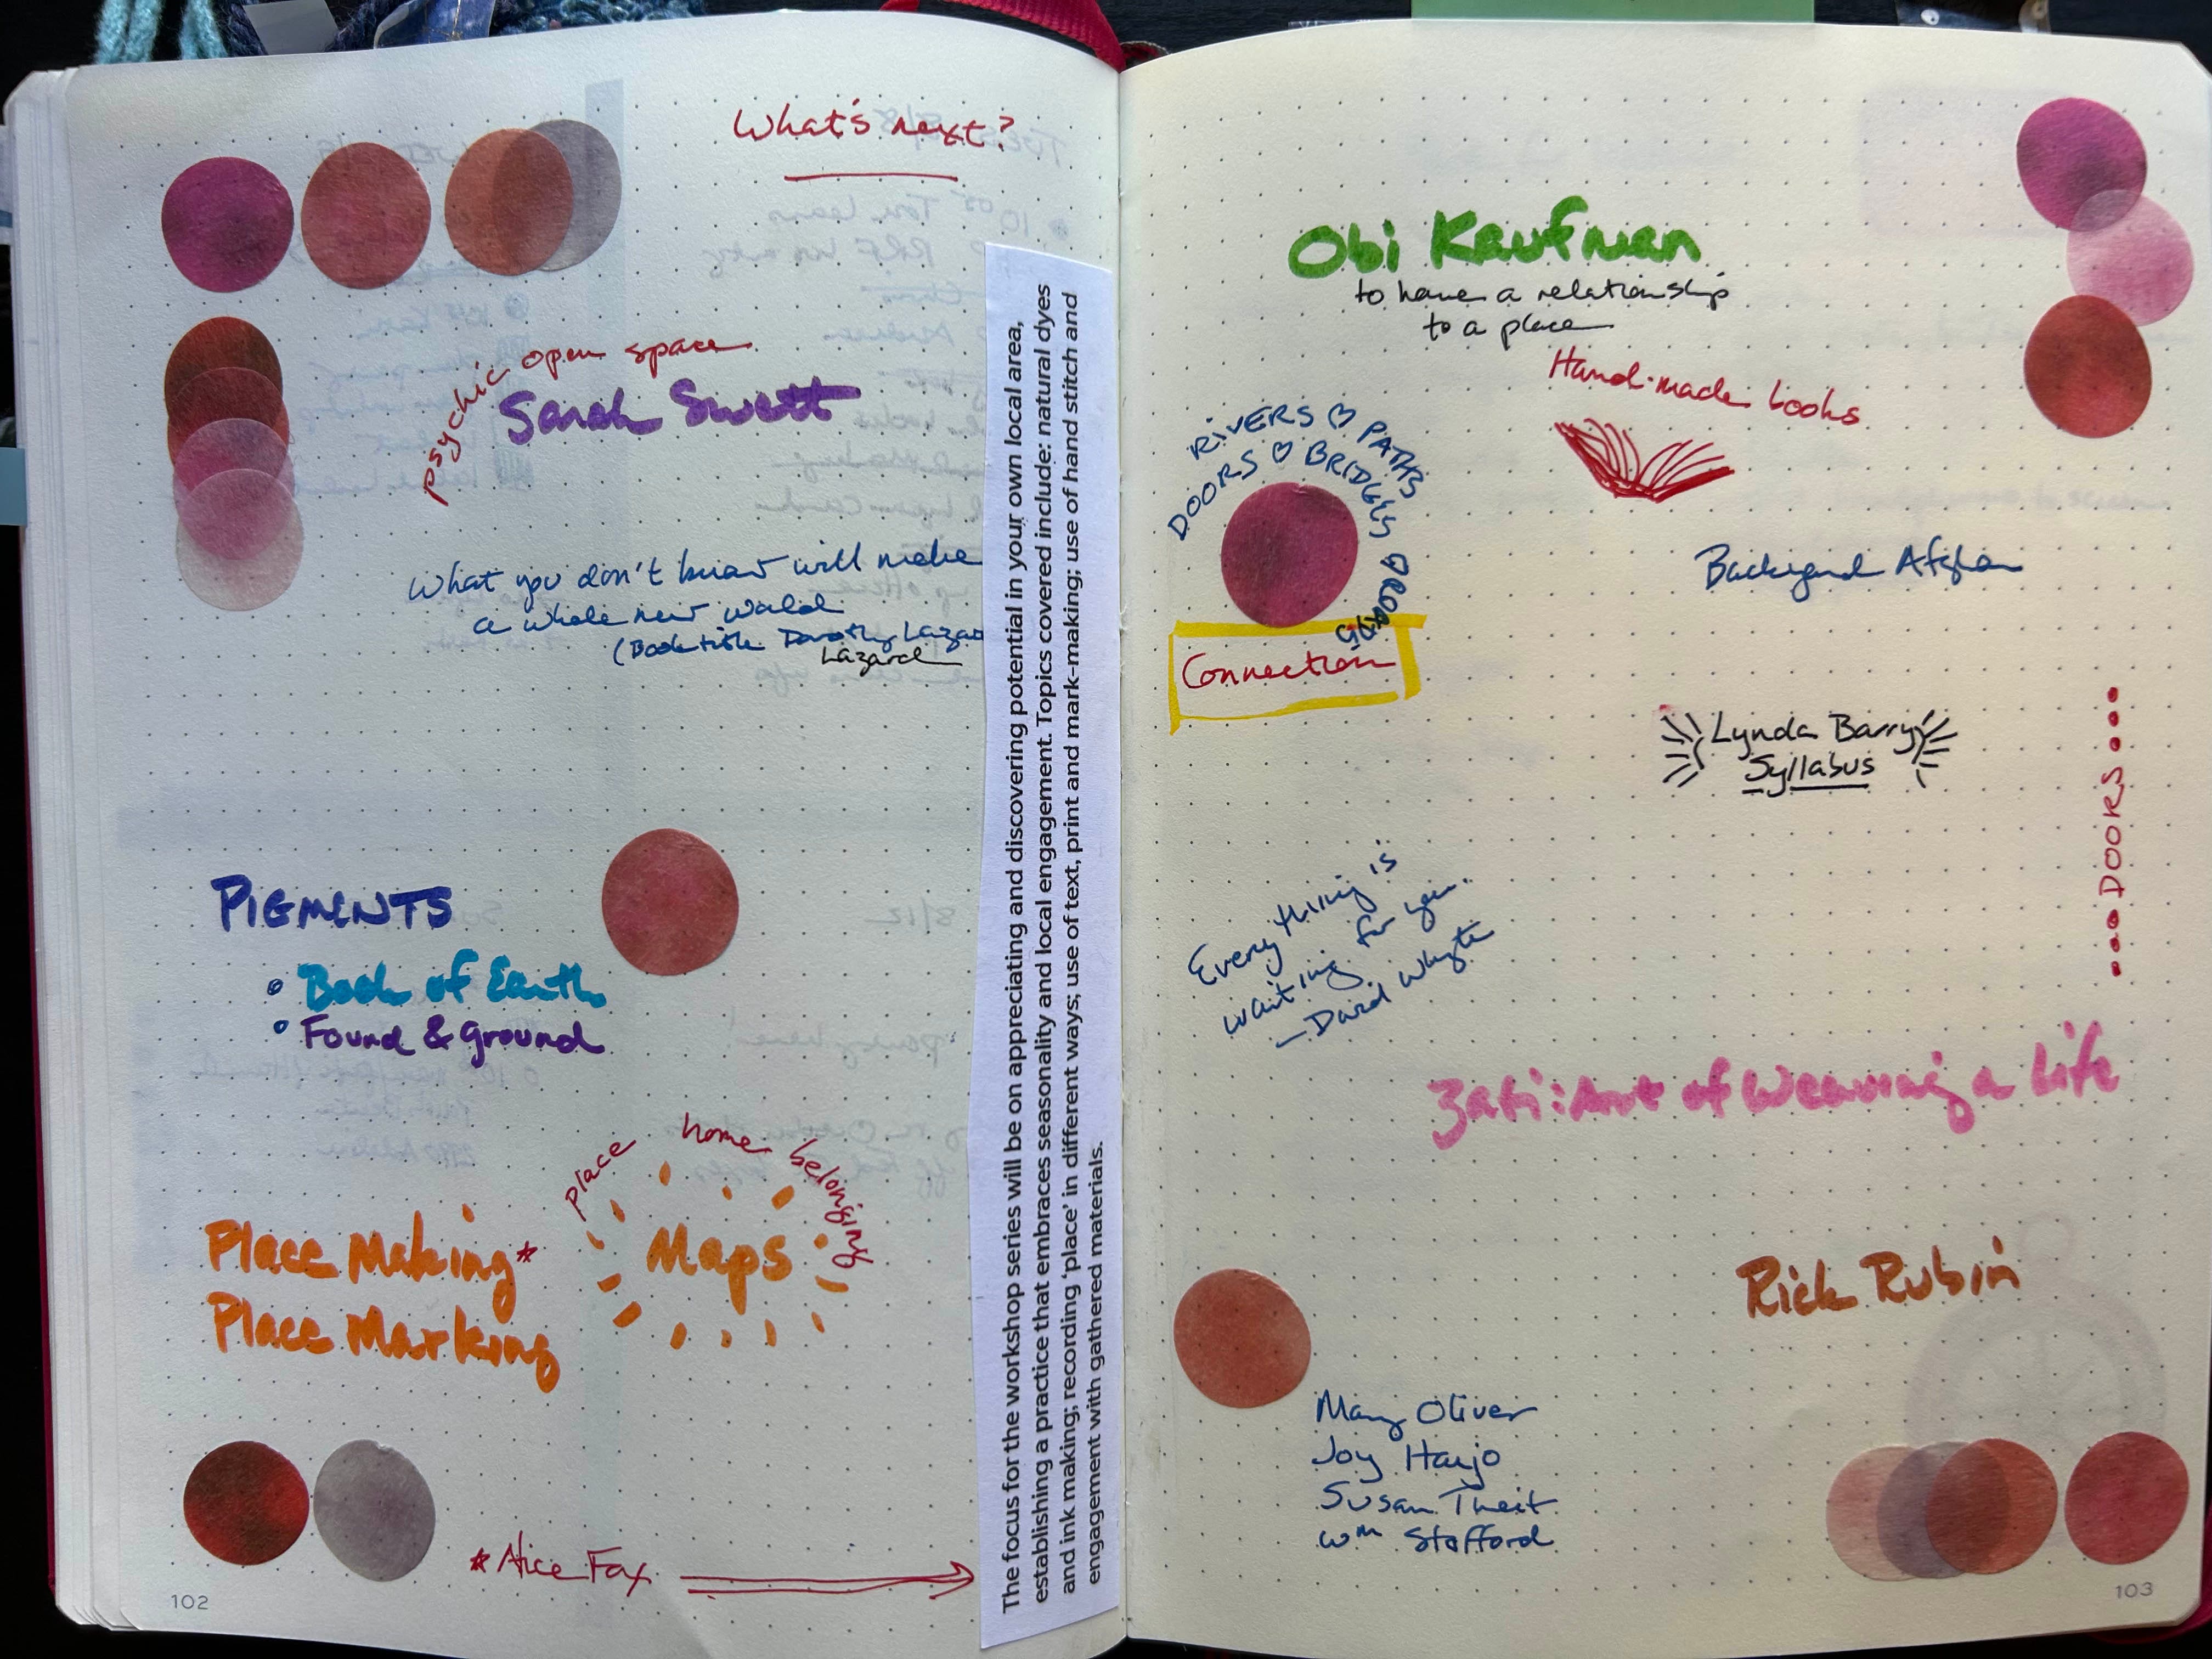 What's next?
psychic open space
Sarah Swett
What you don't know will make
a whole new world
(Book title Dorothy Lazar
Lazard
PIGMENTS
• Book of Earth
• Found & Ground
place home belonging
Maps
Place Making*
Place Marking
*Alice Fox
102
The focus for the workshop series will be on appreciating and discovering potential in your own local area,
establishing a practice that embraces seasonality and local engagement. Topics covered include: natural dyes
and ink making; recording 'place' in different ways; use of text, print and mark-making; use of hand stitch and
engagement with gathered materials.
Obi Kaufman
to have a relationship
to a place
Hand-made books
RIVERS ♡ PATHS
DOORS ♡ BRIDGES ♡ ROADS
Connection
Backyard Afghan
Lynda Barry
Syllabus
...DOORS...
Everything is
waiting for you.
– David Whyte
Zati: Art of Weaving a Life
Rick Rubin
Mary Oliver
Joy Harjo
Susan
Wm Stafford
103